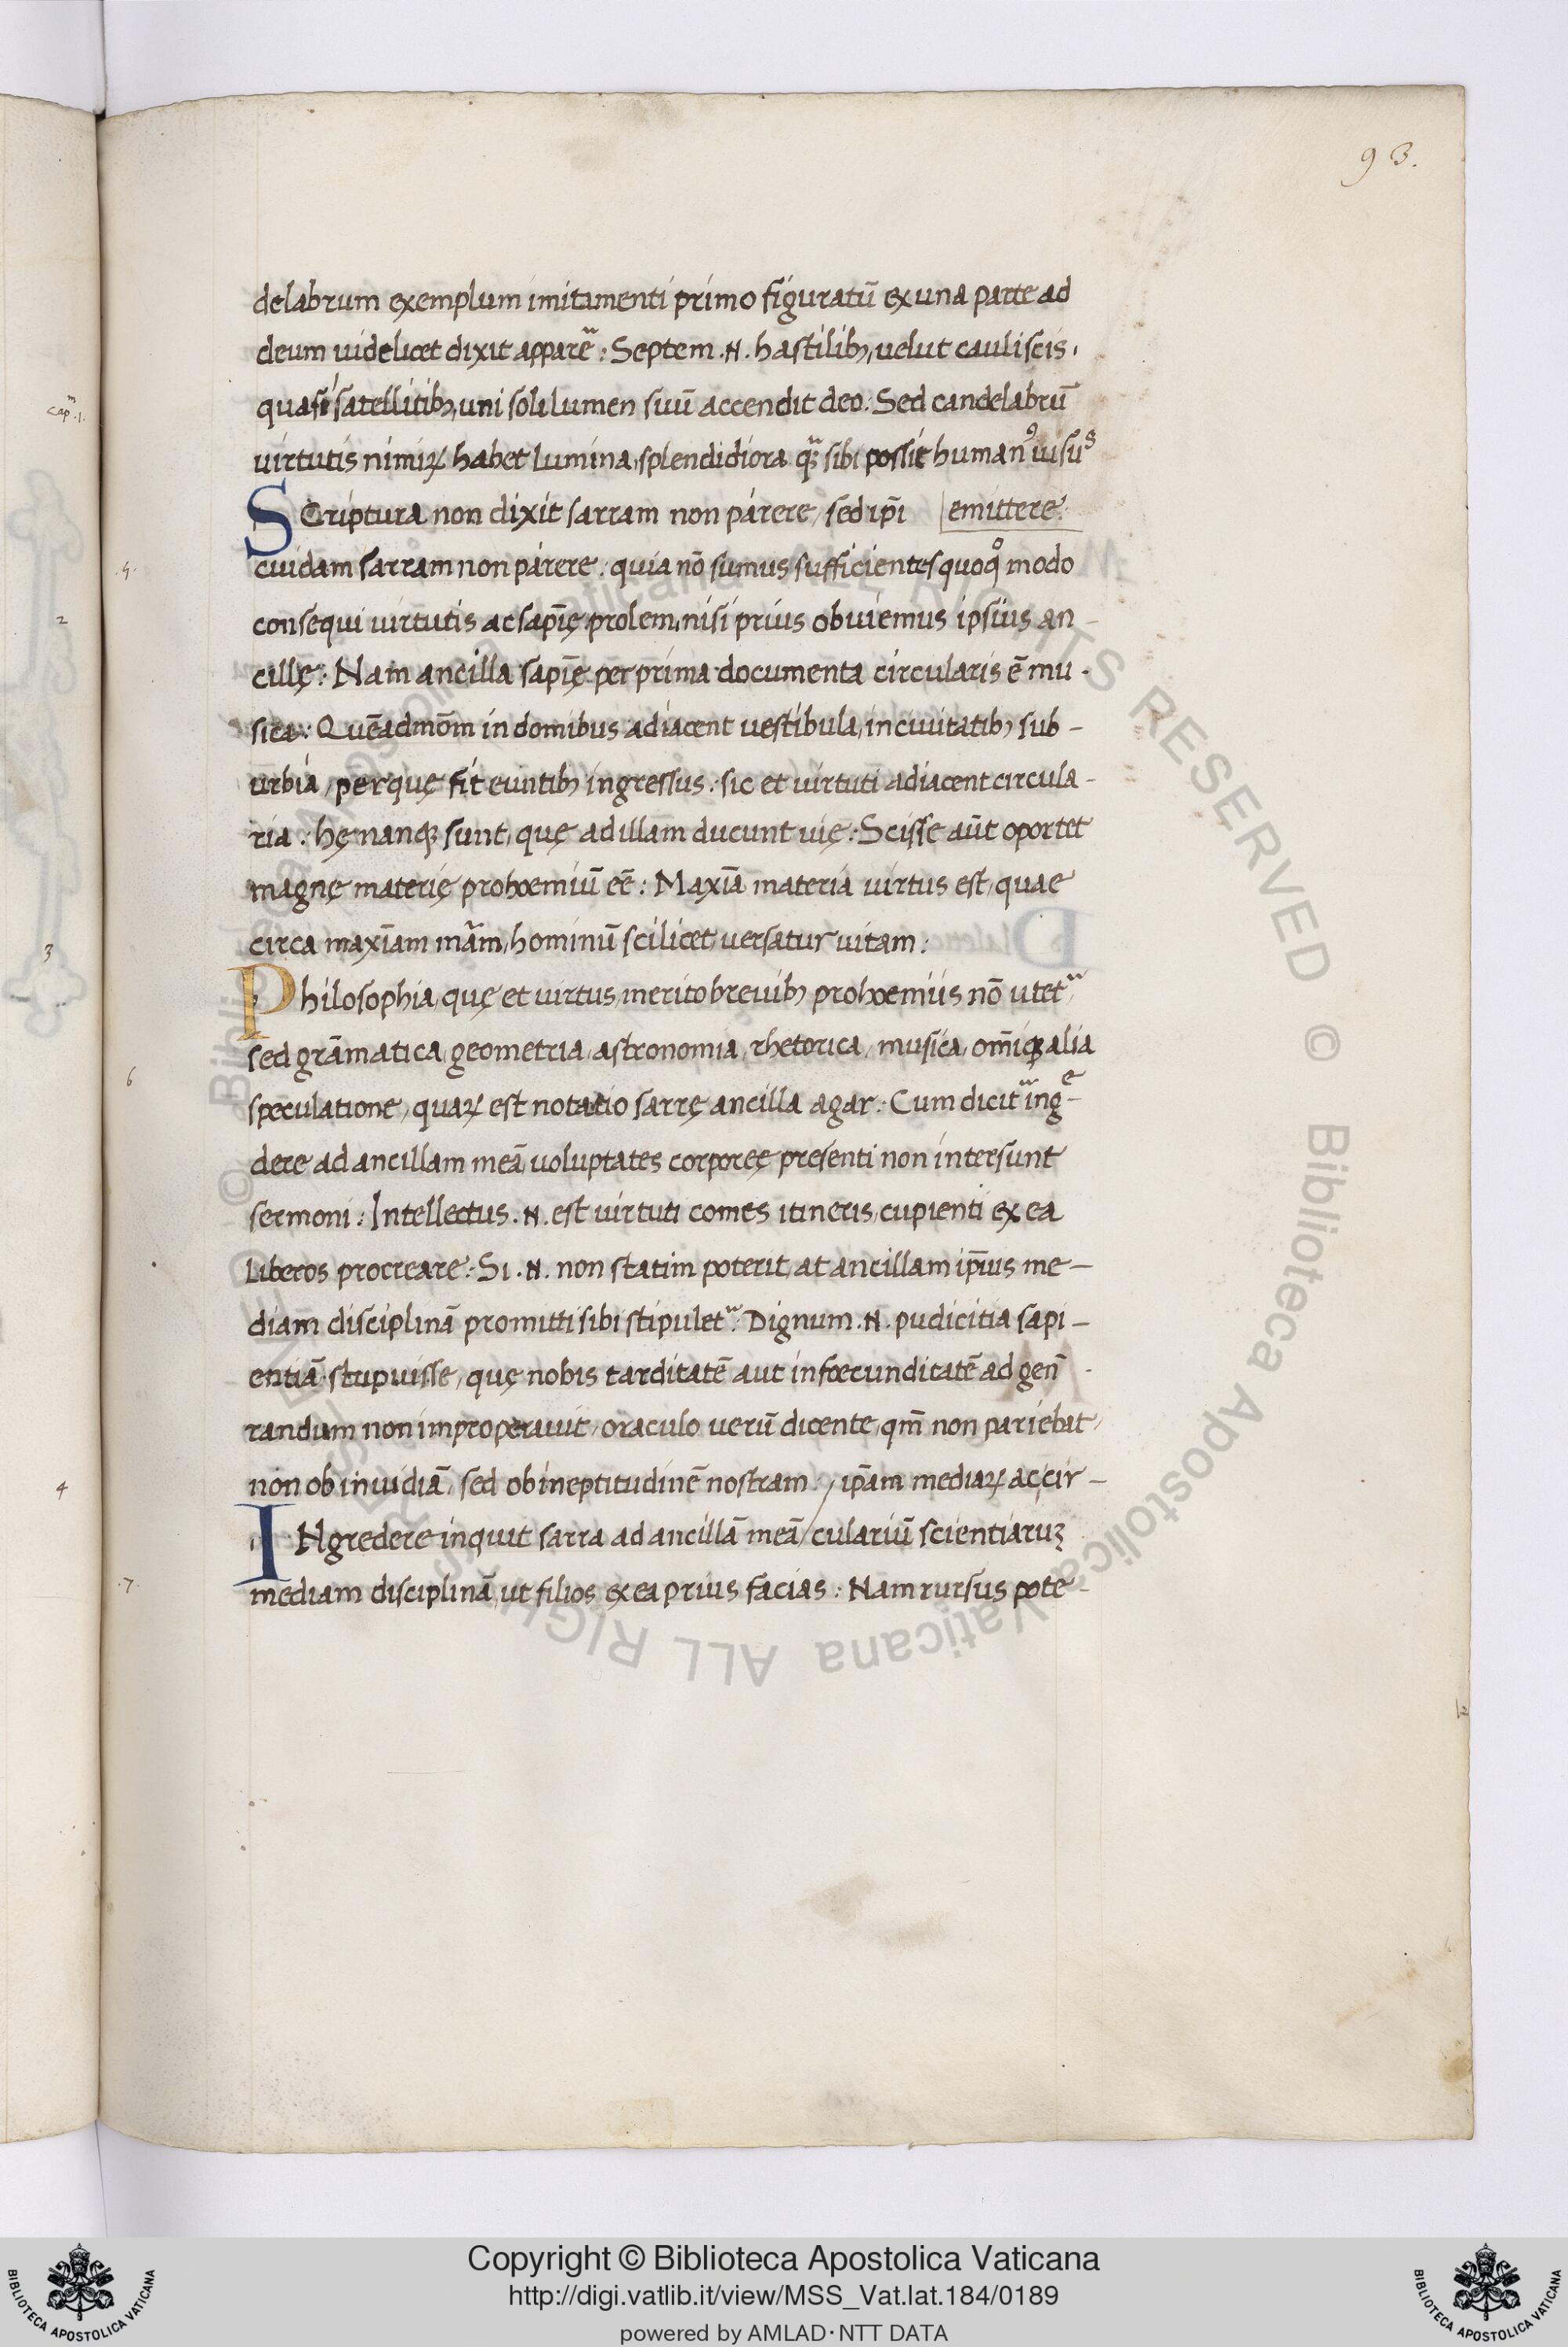 93.
delabrum exemplum imitamenti primo figuratū ex una parte ad
deum uidelicet dixit apparē: Septem .N. hastilib, uelut cauliscis,
quasi satellitib, uni soli lumen suū accendit deo: Sed candelabrū
virtutis nimiꝝ habet lumina, splendidiora q̃ sibi possit humanꝰ uisus
emittere:
Scriptura non dixit sarram non parere, sed ip̄i
cuidam sarram non parere: quia nō sumus sufficientes quoqͦ modo
consequi virtutis ac sapīę prolem, nisi prius obuiemus ipsius an-
cillę: Nam ancilla sapīę per prima documenta circularis ē mu-
sica: Quēadmōm in domibus adiacent vestibula, in ciuitatib, sub-
urbia, per quę fit euntib, ingressus: sic et virtuti adiacent circula-
ria: hę nanqȝ sunt, quę ad illam ducunt uię: Scisse aūt oportet
magnę materię prohoemiū eē: Maxīa materia virtus est, quae
circa maxīam mām, hominū scilicet uersatur vitam:
Philosophia, quę et virtus, merito breuib, prohoemiis nō utet᷑,
sed grāmatica, geometria, astronomia, rhetorica, musica, om̄iqȝ alia
6
speculatione, quaꝝ est notatio sarrę ancilla agar: Cum dicit᷑ ingͤ-
dere ad ancillam meā, uoluptates corporeę presenti non intersunt
sermoni: Intellectus .N. est virtuti comes itineris, cupienti ex ea
liberos procreare: Si .N. non statim poterit, at ancillam ip̄ius me-
diam disciplinā promitti sibi stipulet᷑: Dignum .N. pudicitia sapi-
entiā stupuisse, quę nobis tarditatē aut infœcunditatē ad gen̄
randum non improperauit, oraculo uerū dicente, qm̄ non pariebat,
non ob inuidiā, sed ob ineptitudinē nostram: / ip̄am mediaꝝ ac cir-
INgredere inquit sarra ad ancillā meā / culariū scientiaruȝ
.7.
mediam disciplinā, ut filios ex ea prius facias: Nam rursus pote-
Cap.m .1.
2
3
4
Copyright © Biblioteca Apostolica Vaticana
http://digi.vatlib.it/view/MSS_Vat.lat.184/0189
powered by AMLAD·NTT DATA
BIBLIOTECA APOSTOLICA VATICANA
BIBLIOTECA APOSTOLICA VATICANA